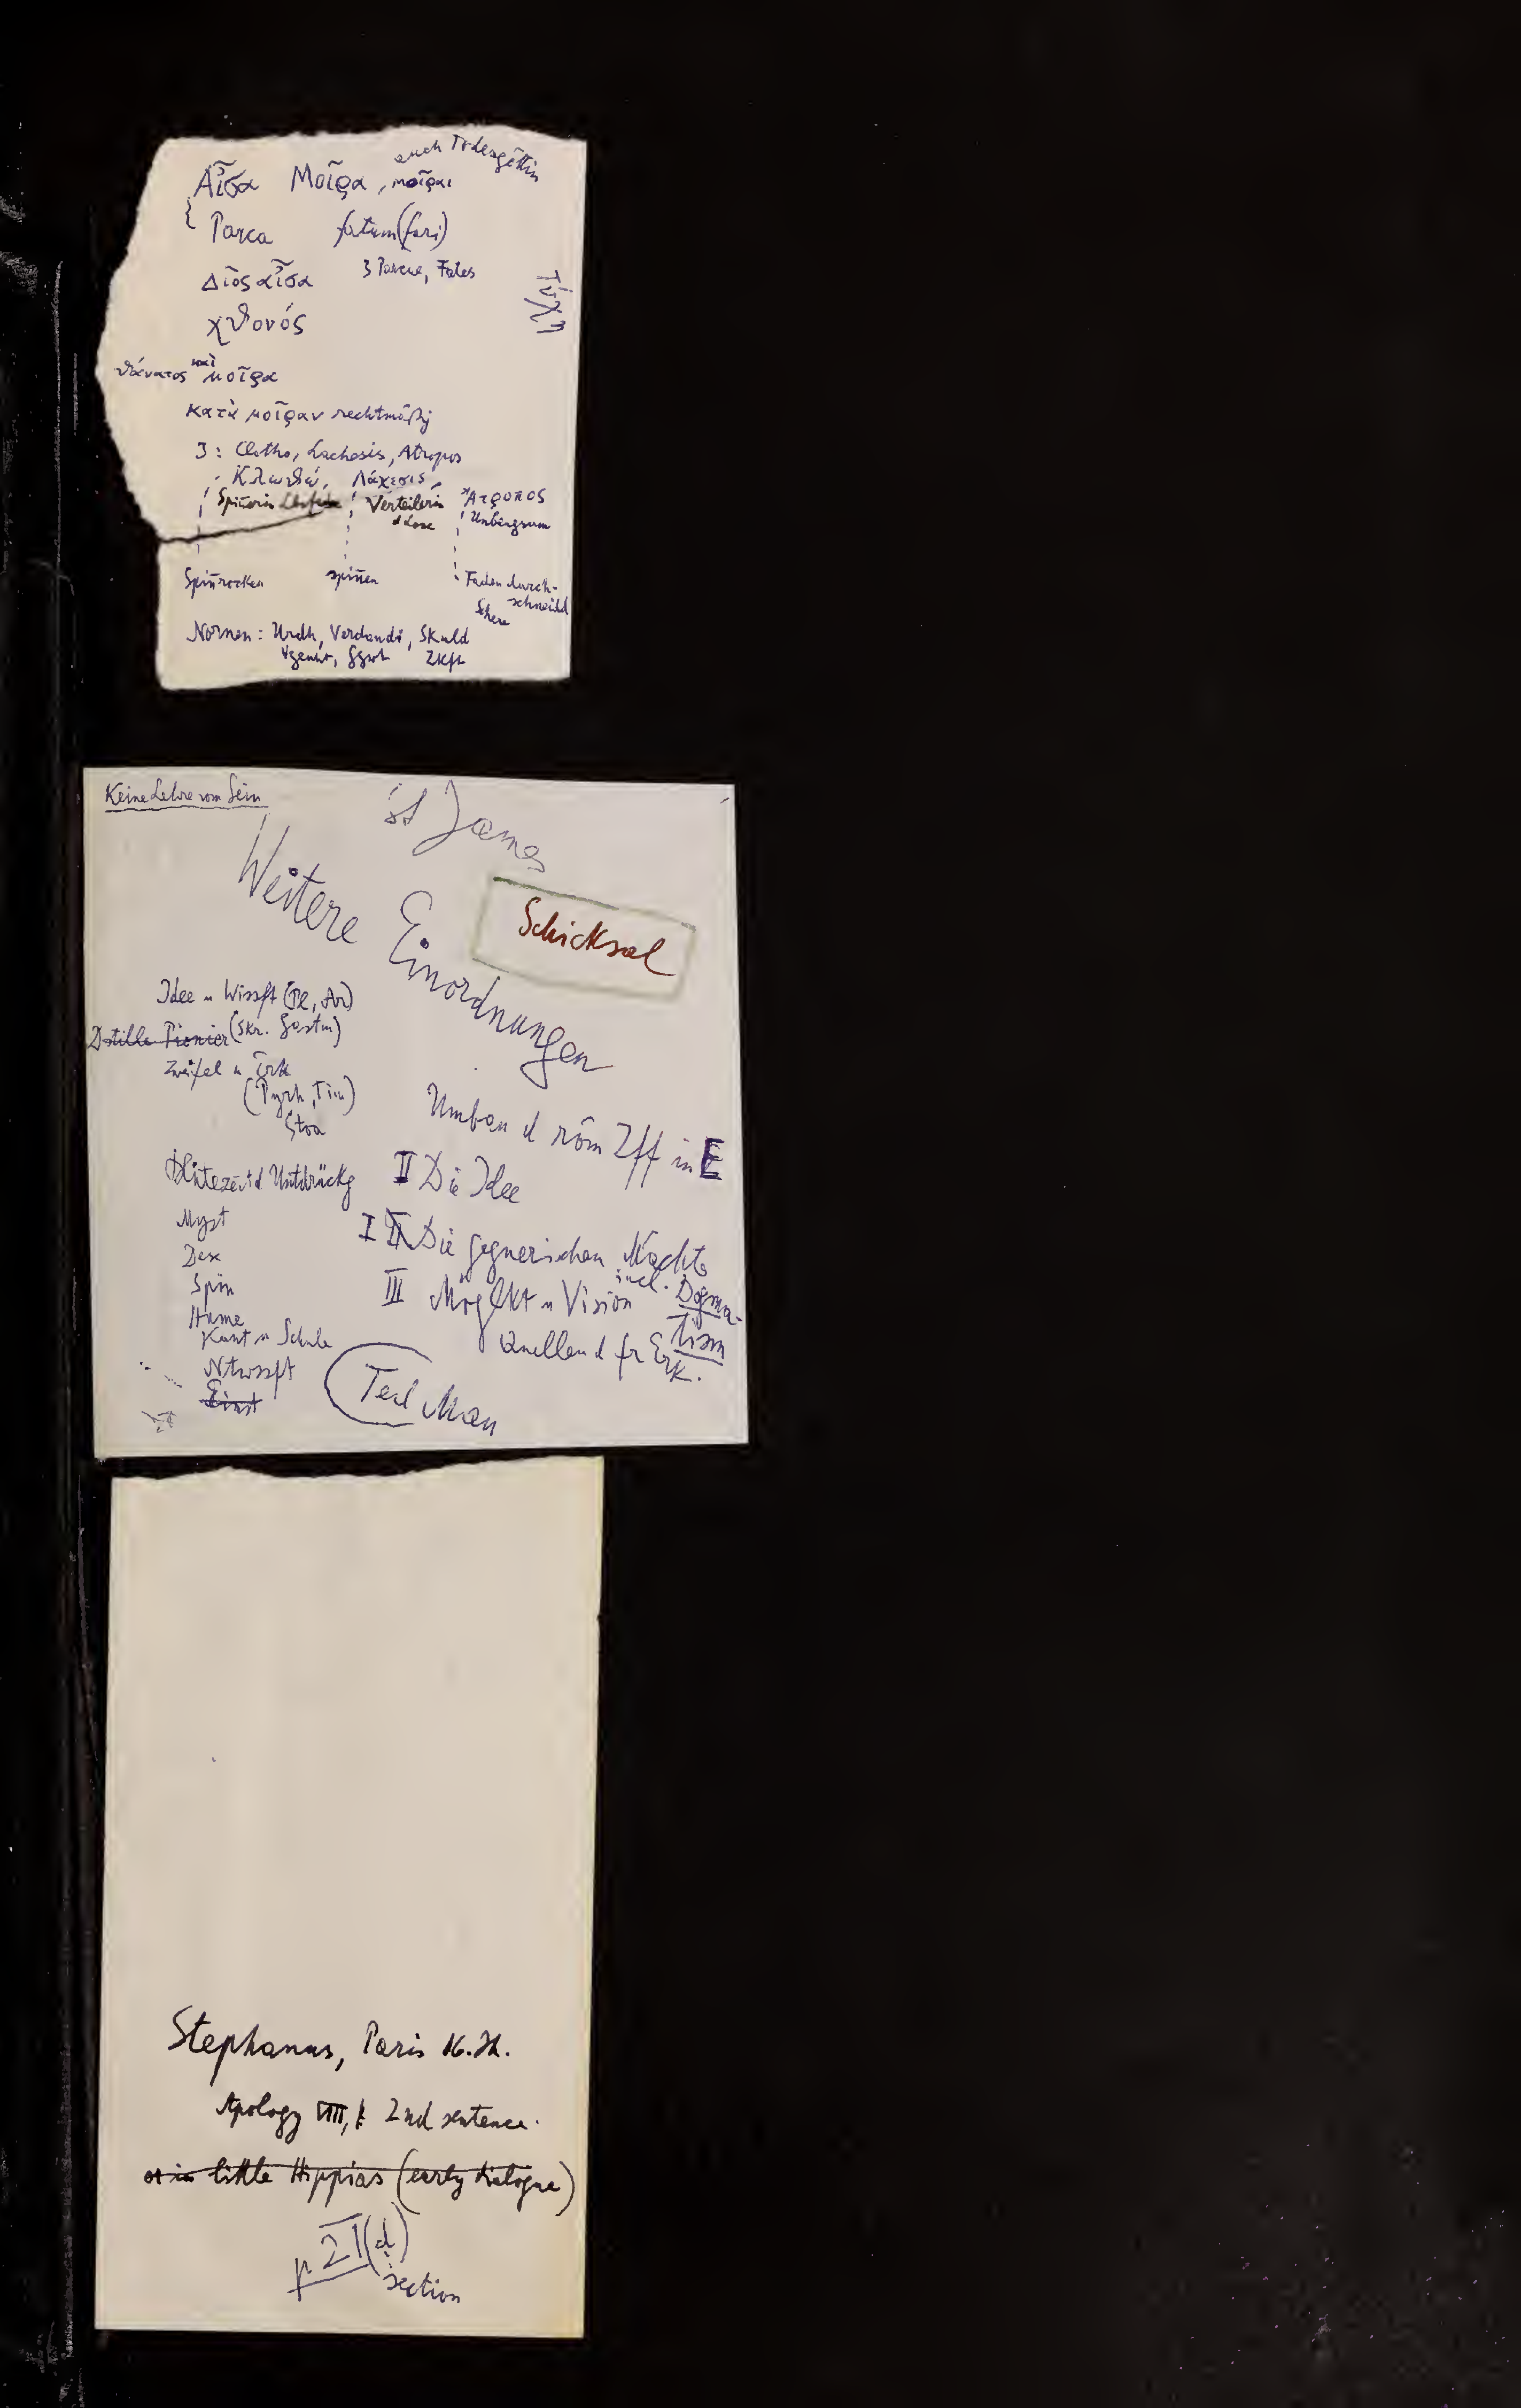 auch Todesgöttin
Αἶσα Μοῖρα, μοῖραι
Parca fatum (fari)
Διὸς αἶσα 3 Parcae, Fates
Τύχη
χθονός
θάνατος καὶ μοῖρα
κατὰ μοῖραν rechtmäßig
3: Clotho, Lachesis, Atropos
Κλωθώ, Λάχεσις, Ἄτροπος
Spinnerin Verteilerin d Lose Unbeugsam
Spinnrocken spinnen Faden durch-
schneidd
Schere
Nornen: Urdh, Verdandi, Skuld
Vgenht, Ggwt Zkft
Keine Lehre vom Sein
St James
Weitere Einordnungen
Schicksal
Idee u Wissft (Pl, Ar)
D stille Pionier (Skr. Gestn)
Zweifel u Erk
(Pyrh, Tim)
Stoa
Blütezeit d Untdrückg
Myst
Desc
Spin
Hume
Kant u Schule
Ntwssft
Einst
Umbau d röm Zff in E
II Die Idee
I Die gegnerischen Mächte
incl. Dogma-
tism
III Möglkt u Vision
Quellen d fr Erk.
Teil Man
Stephanus, Paris 16. Jh.
Apology VIII, 2nd sentence.
or in little Hippias (early dialogue)
p. 21 (d)
section